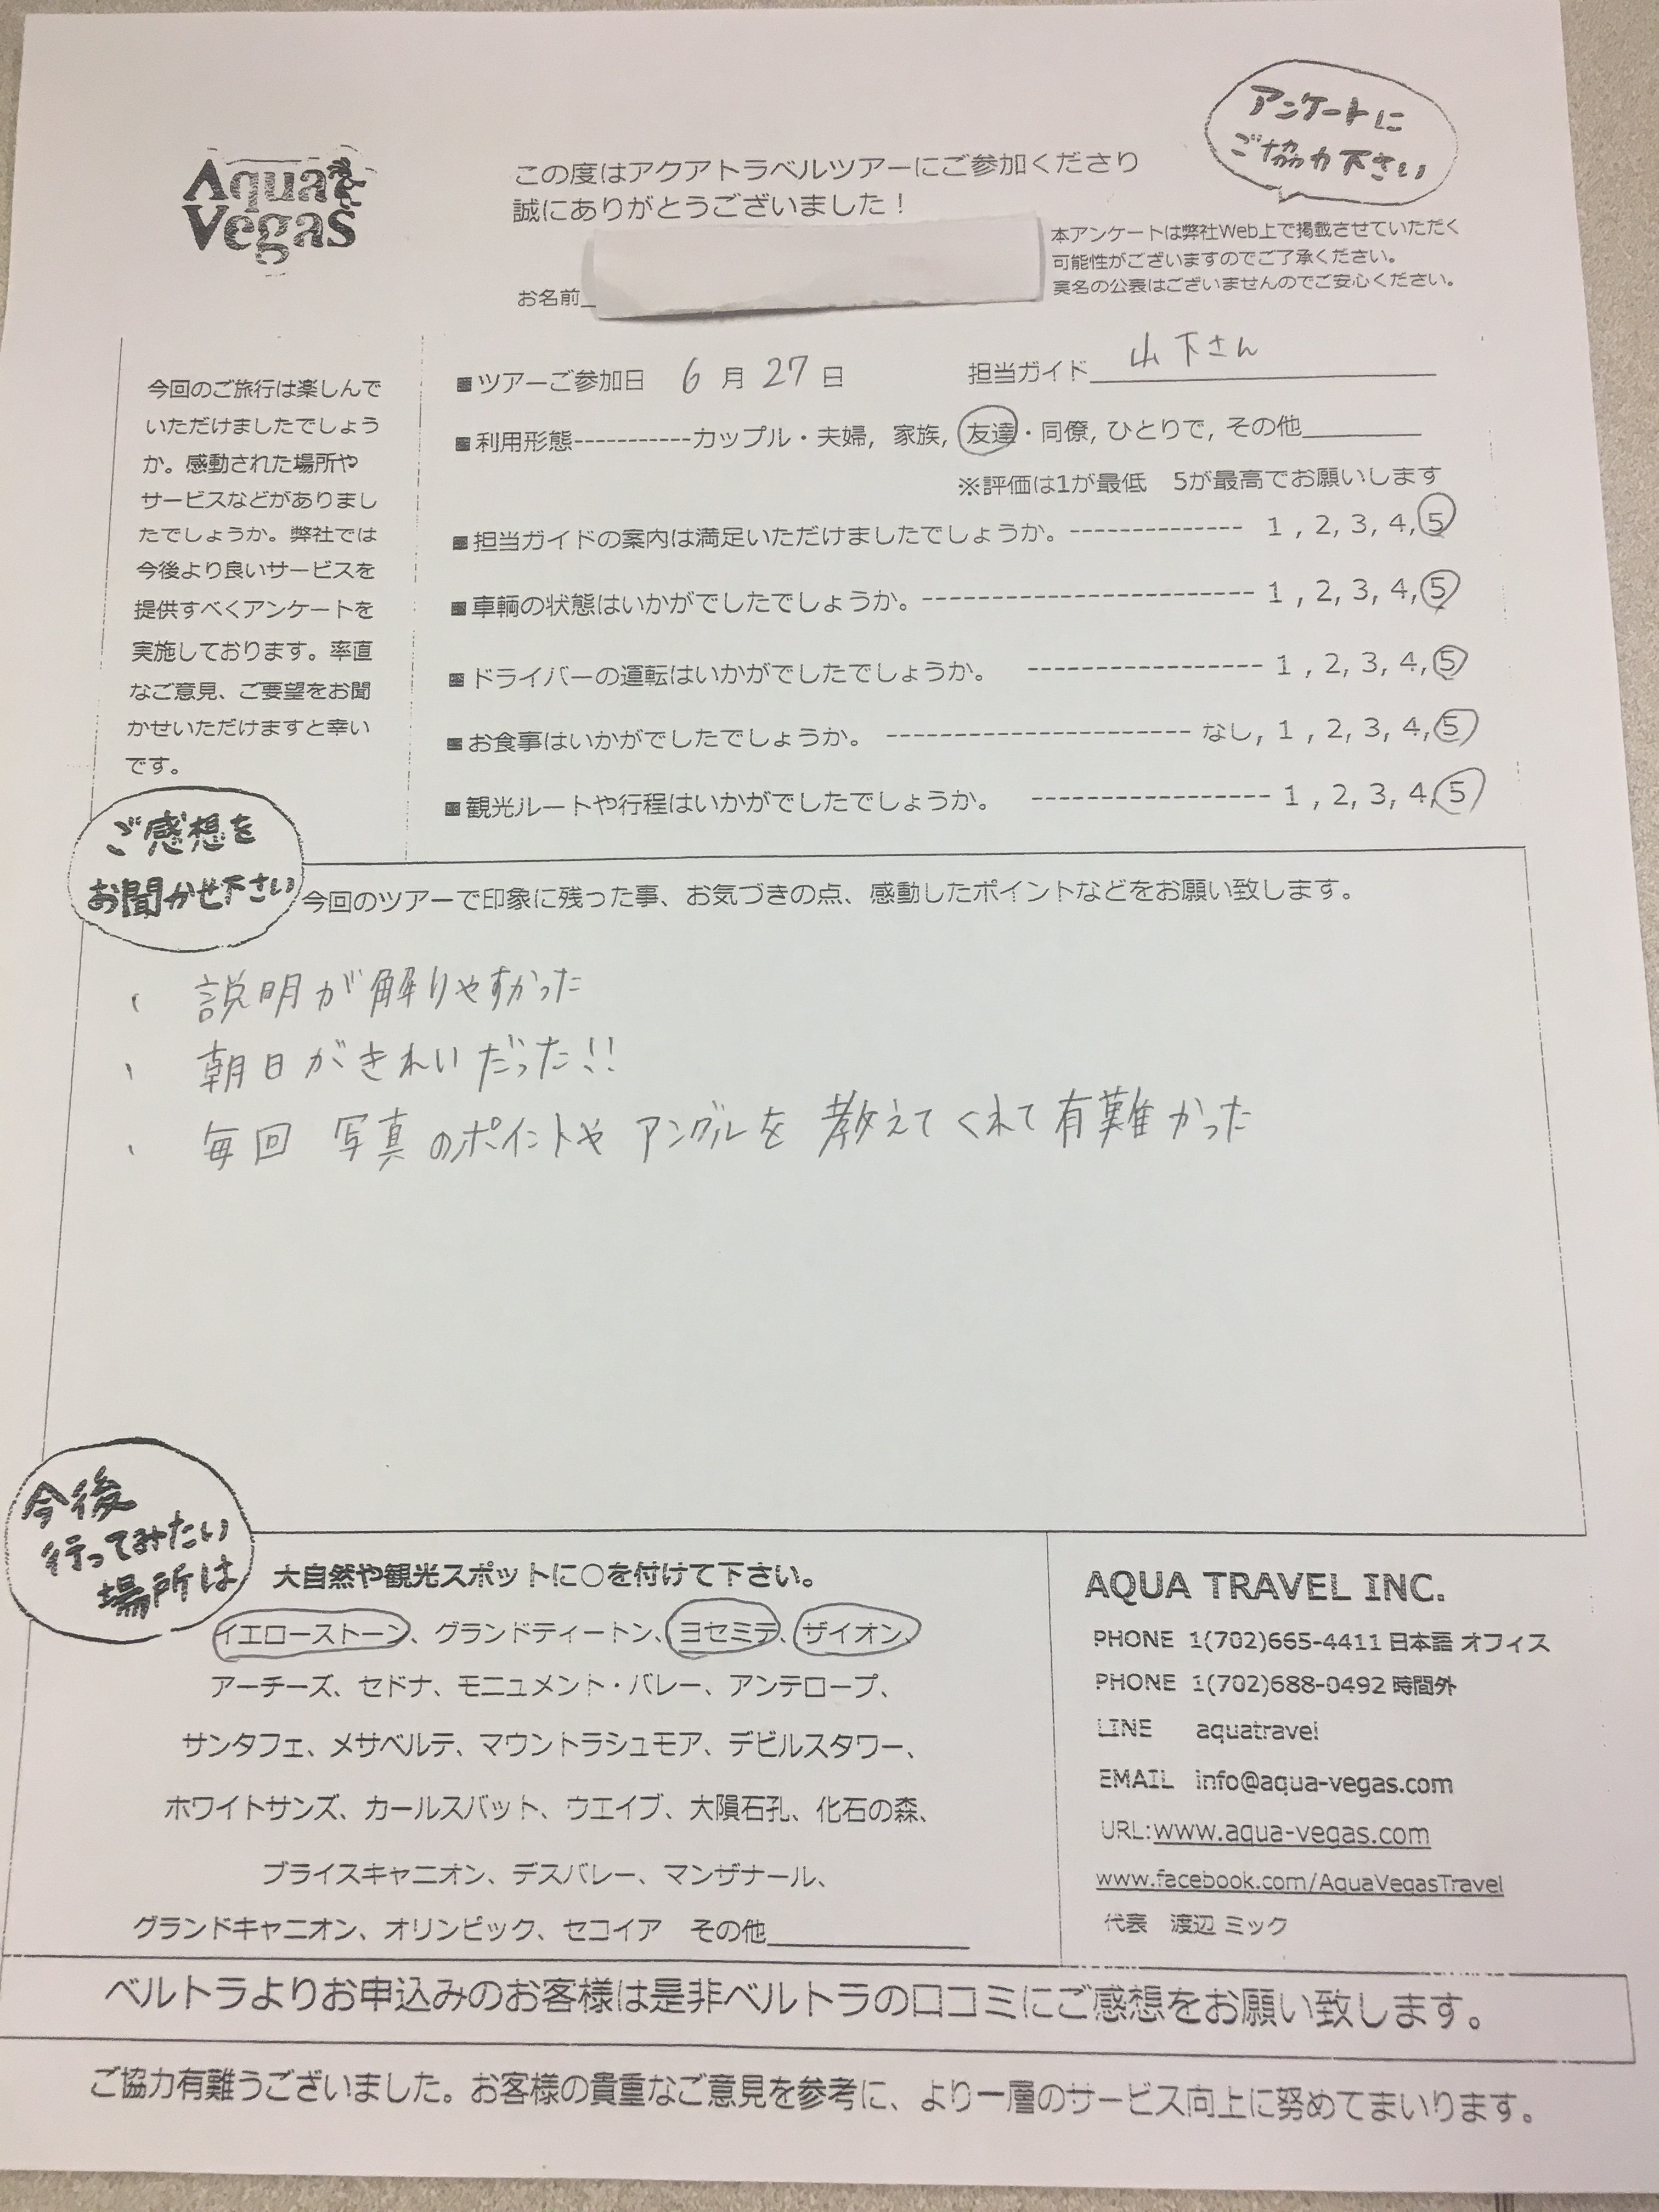 Aqua
Vegas
この度はアクアトラベルツアーにご参加くださり
誠にありがとうございました！
アンケートに
ご協力下さい
本アンケートは弊社Web上で掲載させていただく
可能性がございますのでご了承ください。
実名の公表はございませんのでご安心ください。
お名前
今回のご旅行は楽しんで
いただけましたでしょう
か。感動された場所や
サービスなどがありまし
たでしょうか。弊社では
今後より良いサービスを
提供すべくアンケートを
実施しております。率直
なご意見、ご要望をお聞
かせいただけますと幸い
です。
■ツアーご参加日 6月27日 担当ガイド 山下さん
■利用形態-----------カップル・夫婦, 家族, 友達・同僚, ひとりで, その他
※評価は1が最低 5が最高でお願いします
■担当ガイドの案内は満足いただけましたでしょうか。------------- 1 , 2, 3, 4, 5
■車輌の状態はいかがでしたでしょうか。------------------------- 1 , 2, 3, 4, 5
■ドライバーの運転はいかがでしたでしょうか。 ----------------- 1 , 2, 3, 4, 5
■お食事はいかがでしたでしょうか。 ---------------------- なし, 1 , 2, 3, 4, 5
■観光ルートや行程はいかがでしたでしょうか。 ----------------- 1 , 2, 3, 4, 5
ご感想を
お聞かせ下さい
今回のツアーで印象に残った事、お気づきの点、感動したポイントなどをお願い致します。
、説明が解りやすかった
、朝日がきれいだった!!
、毎回 写真のポイントや アングルを 教えてくれて有難かった
今後
行ってみたい
場所は
大自然や観光スポットに○を付けて下さい。
イエローストーン、グランドティートン、ヨセミテ、ザイオン、
アーチーズ、セドナ、モニュメント・バレー、アンテロープ、
サンタフェ、メサベルテ、マウントラシュモア、デビルスタワー、
ホワイトサンズ、カールスバット、ウエイブ、大隕石孔、化石の森、
ブライスキャニオン、デスバレー、マンザナール、
グランドキャニオン、オリンピック、セコイア その他
AQUA TRAVEL INC.
PHONE 1(702)665-4411 日本語 オフィス
PHONE 1(702)688-0492 時間外
LINE aquatravel
EMAIL info@aqua-vegas.com
URL:www.aqua-vegas.com
www.facebook.com/AquaVegasTravel
代表 渡辺 ミック
ベルトラよりお申込みのお客様は是非ベルトラの口コミにご感想をお願い致します。
ご協力有難うございました。お客様の貴重なご意見を参考に、より一層のサービス向上に努めてまいります。